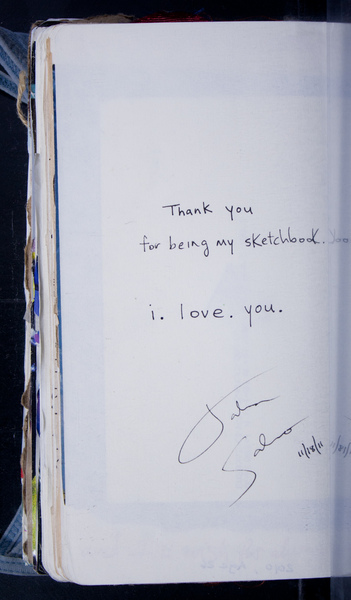 Thank you
for being my sketchbook.
i. love. you.
11/18/11